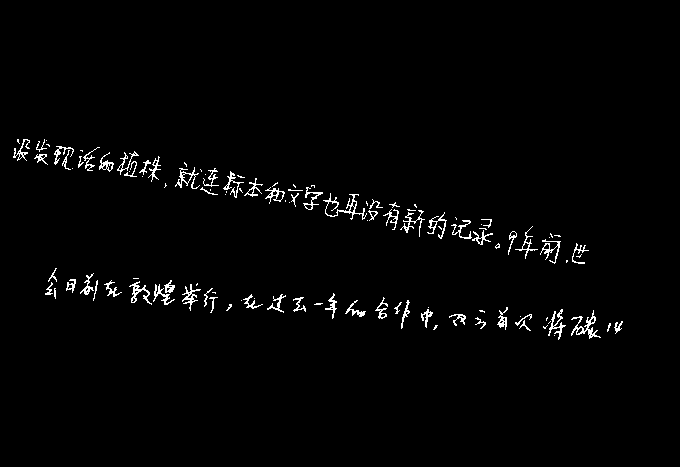 没发现活的植株,就连标本和文字也再没有新的记录。9年前,世
会日前在敦煌举行,在过去一年的合作中,双方首次将碳14